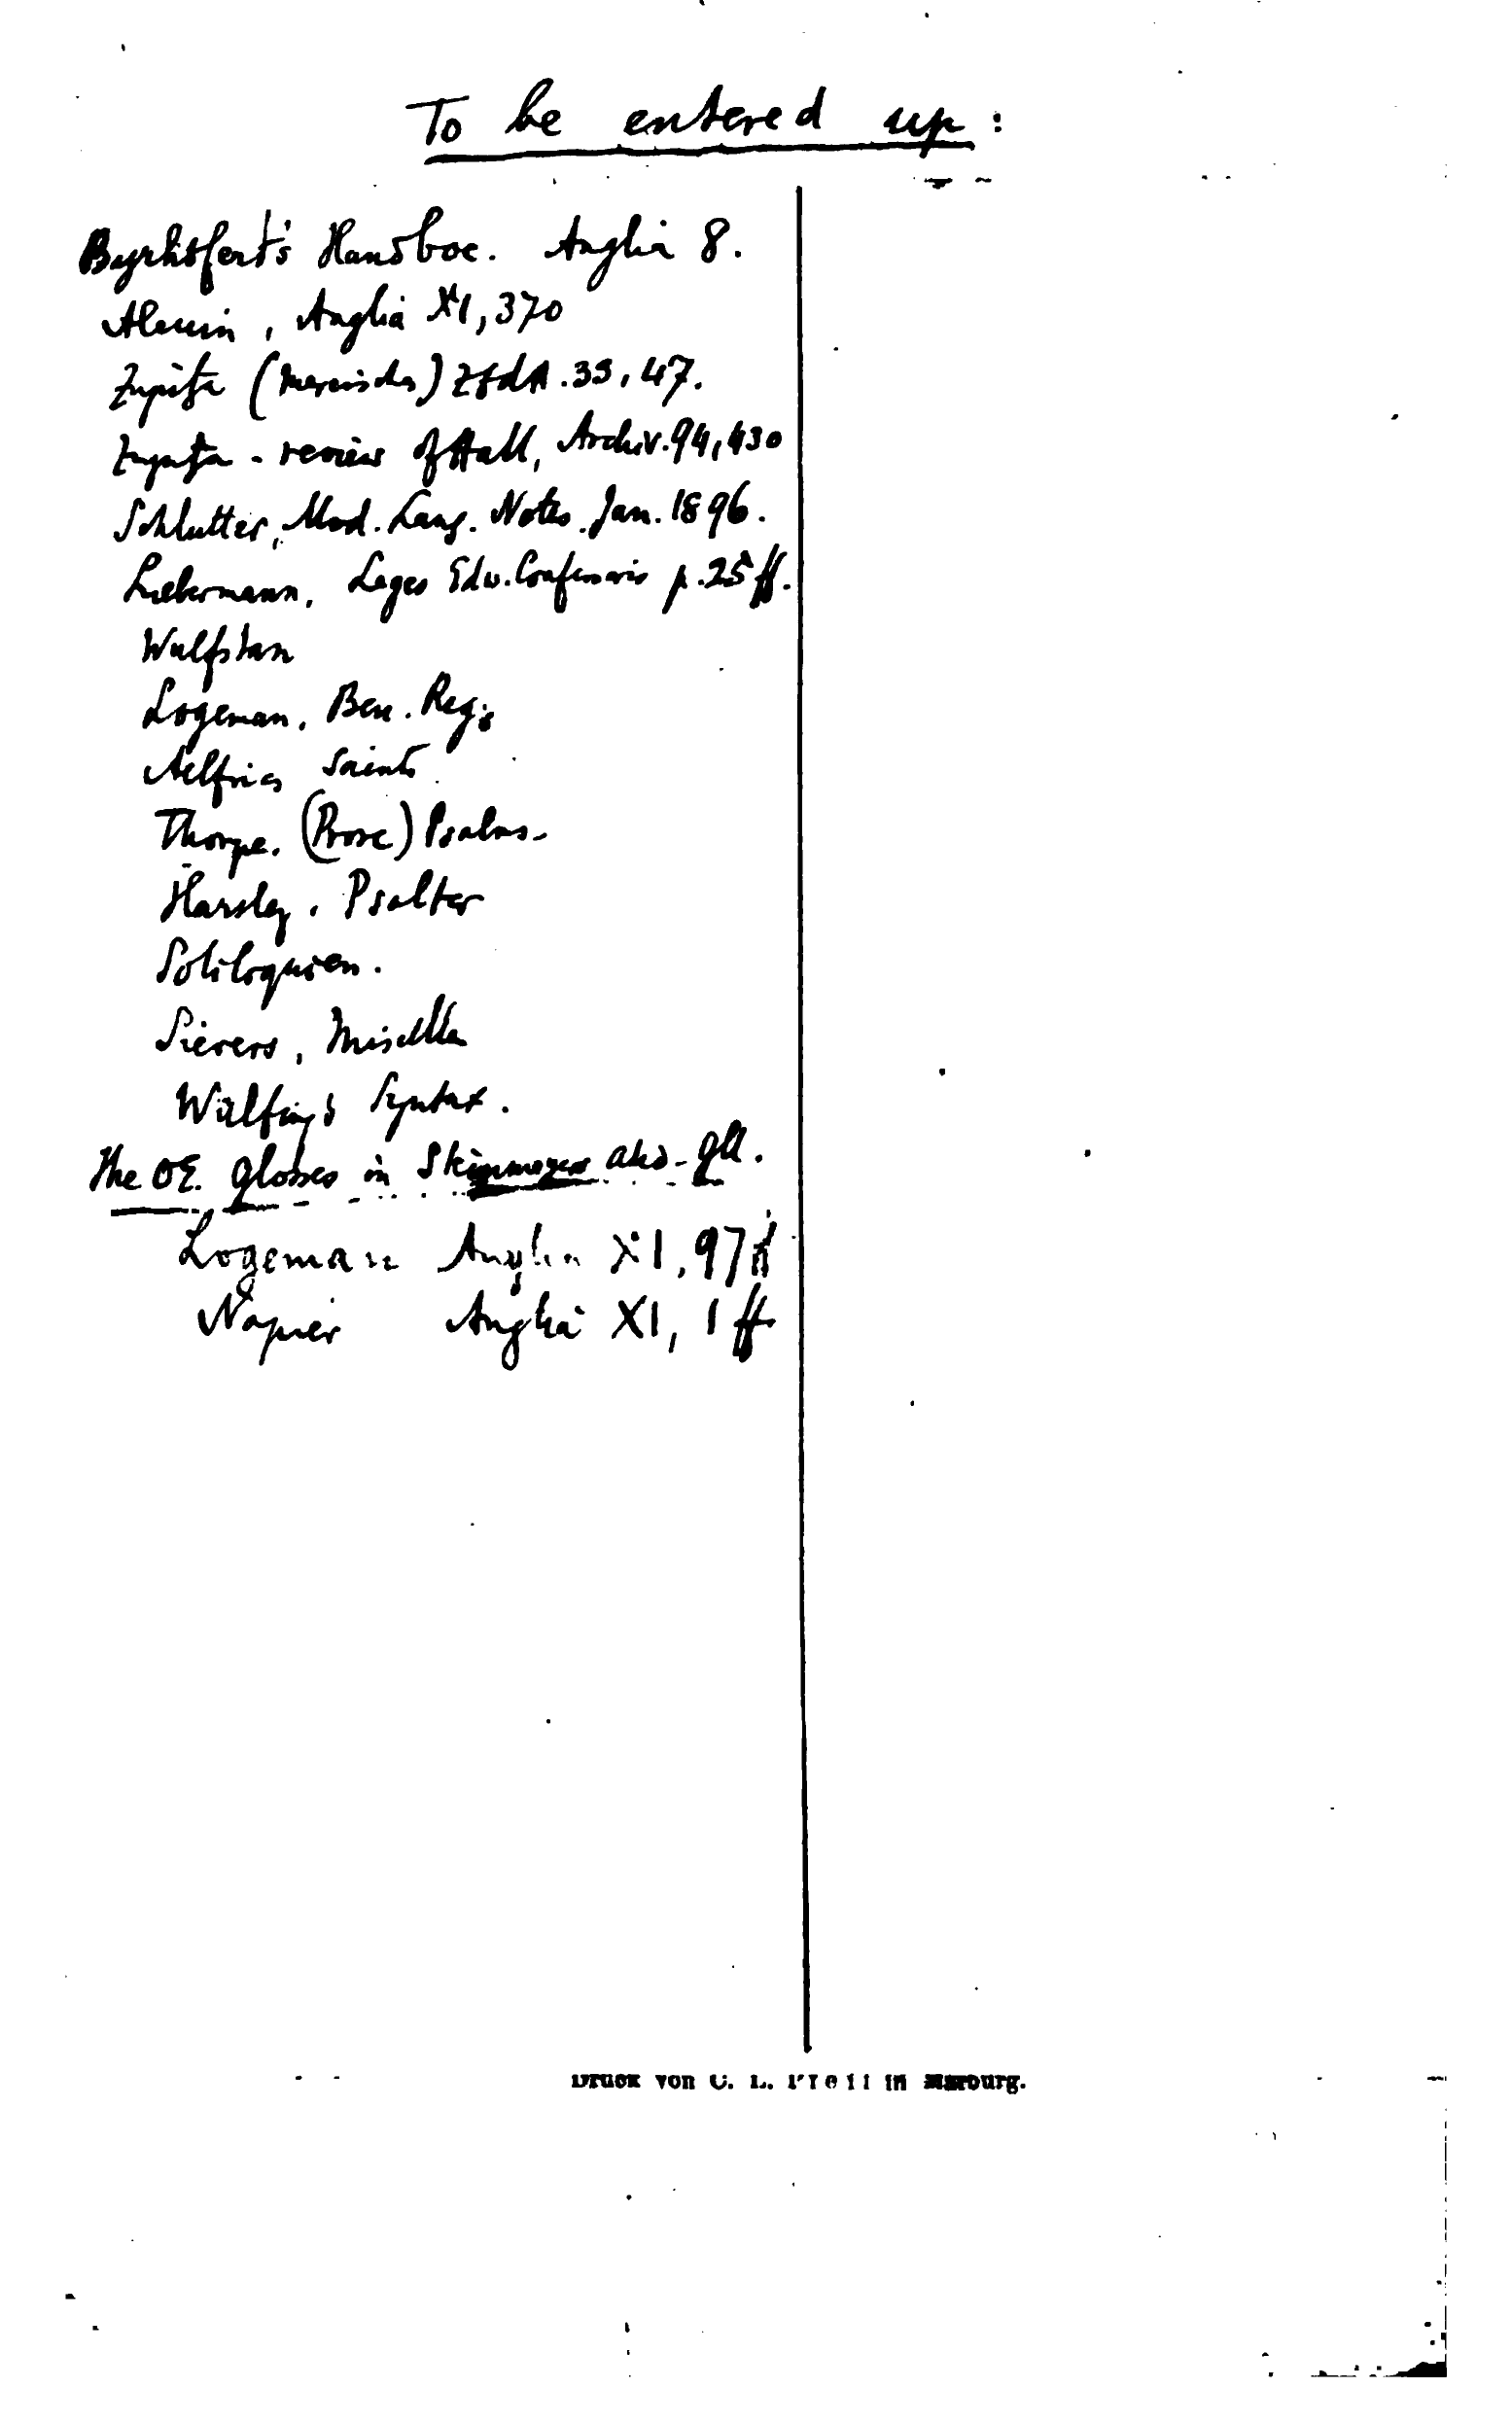 To be entered up:
Byrhtferts Handboc. Anglia 8.
Alcuin, Anglia XI, 370
Zupitza (Mercisches) ZfdA. 33, 47.
Zupitza - review of Hall, Archiv. 94, 430
Schlutter, Mod. Lang. Notes. Jan. 1896.
Liebermann, Leges Edw. Confessoris p. 25 ff.
Wulfstan
Logeman, Ben. Reg.
Aelfrics Saints
Thorpe. (Prose) Psalms-
Harsley. Psalter
Soliloquien.
Sievers, Miscellen
Wülfing's Syntax.
The OE. glosses in Steinmeyers ahd- gll.
Logeman Anglia XI, 97 ff
Napier Anglia XI, 1 ff
Druck von C. L. Pfeil in Marburg.